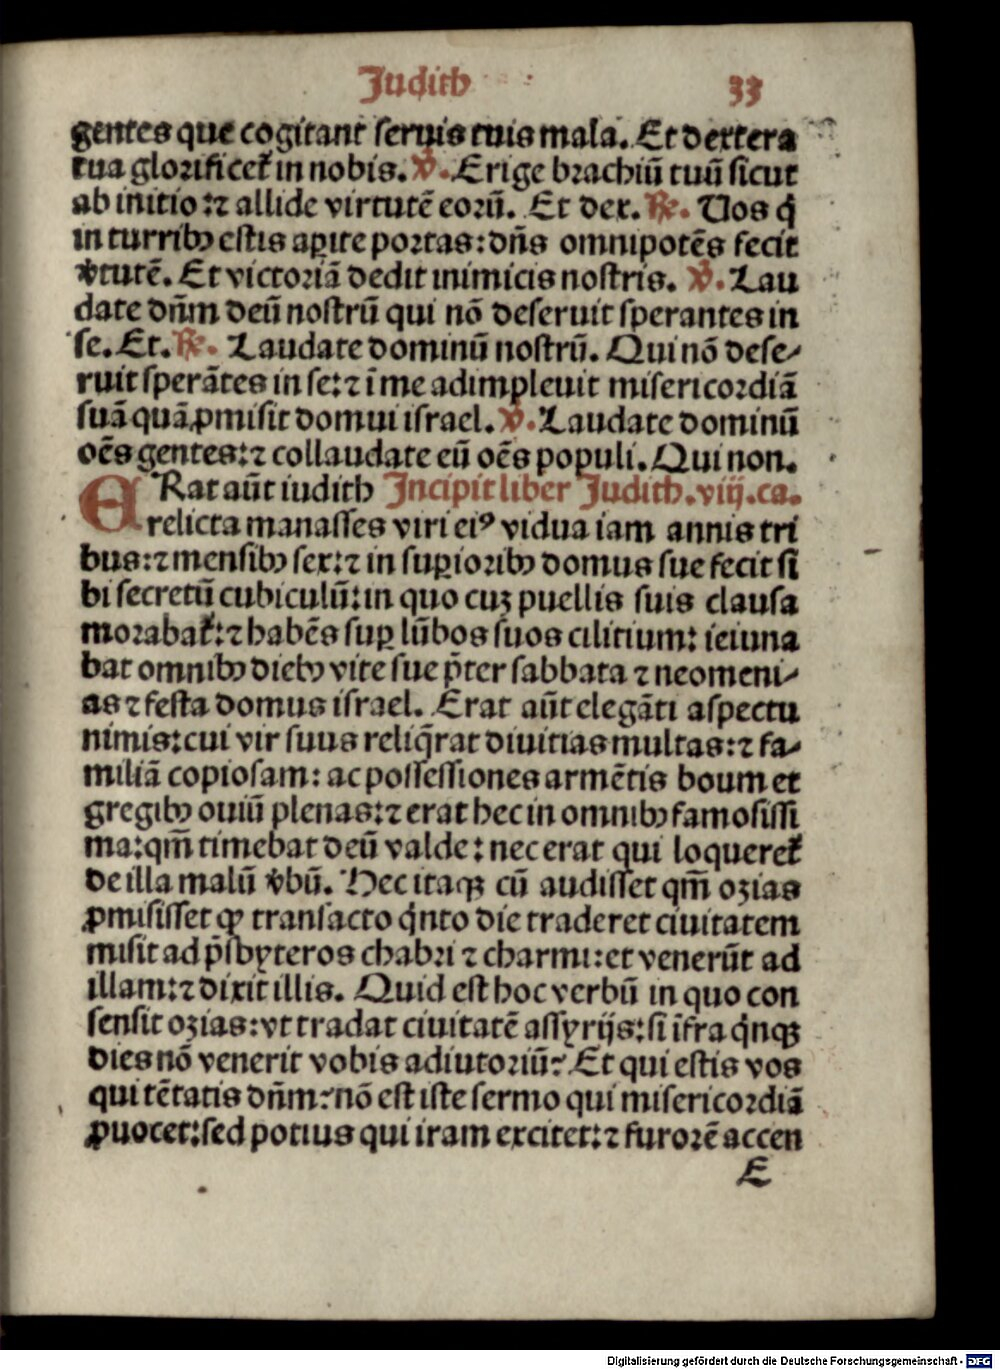 Judith 33
gentes que cogitant seruis tuis mala. Et dextera
tua glorificet᷑ in nobis. ℣. Erige brachiū tuū sicut
ab initio: ⁊ allide virtutē eorū. Et dex. ℟. Uos q̄
in turribꝫ estis aꝑite portas: dn̄s omnipotēs fecit
v̄tutē. Et victoriā dedit inimicis nostris. ℣. Lau
date dn̄m deū nostrū qui nō deseruit sperantes in
se. Et. ℟. Laudate dominū nostrū. Qui nō dese⸗
ruit sperātes in se: ⁊ ī me adimpleuit misericordiā
suā quā ꝓmisit domui israel. ℣. Laudate dominū
oēs gentes: ⁊ collaudate eū oēs populi. Qui non.
ERat aūt iudith Incipit liber Judith. viij. ca.
relicta manasses viri eiꝰ vidua iam annis tri
bus: ⁊ mensibꝫ sex: ⁊ in suꝑioribꝫ domus sue fecit si
bi secretū cubiculū: in quo cuꝫ puellis suis clausa
morabat᷑: ⁊ habēs suꝑ lūbos suos cilitium: ieiuna
bat omnibꝫ diebꝫ vite sue p̄ter sabbata ⁊ neomeni⸗
as ⁊ festa domus israel. Erat aūt elegāti aspectu
nimis: cui vir suus reliq̄rat diuitias multas: ⁊ fa⸗
miliā copiosam: ac possessiones armētis boum et
gregibꝫ ouiū plenas: ⁊ erat hec in omnibꝫ famosissi
ma: qm̄ timebat deū valde: nec erat qui loqueret᷑
de illa malū v̄bū. Hec itaqꝫ cū audisset qm̄ ozias
ꝓmisisset ꝙ transacto q̄nto die traderet ciuitatem
misit ad p̄sbyteros chabri ⁊ charmi: et venerūt ad
illam: ⁊ dixit illis. Quid est hoc verbū in quo con
sensit ozias: vt tradat ciuitatē assyrijs: si īfra q̄nqꝫ
dies nō venerit vobis adiutoriū? Et qui estis vos
qui tētatis dn̄m? nō est iste sermo qui misericordiā
ꝓuocet: sed potius qui iram excitet: ⁊ furorē accen
E
Digitalisierung gefördert durch die Deutsche Forschungsgemeinschaft - DFG